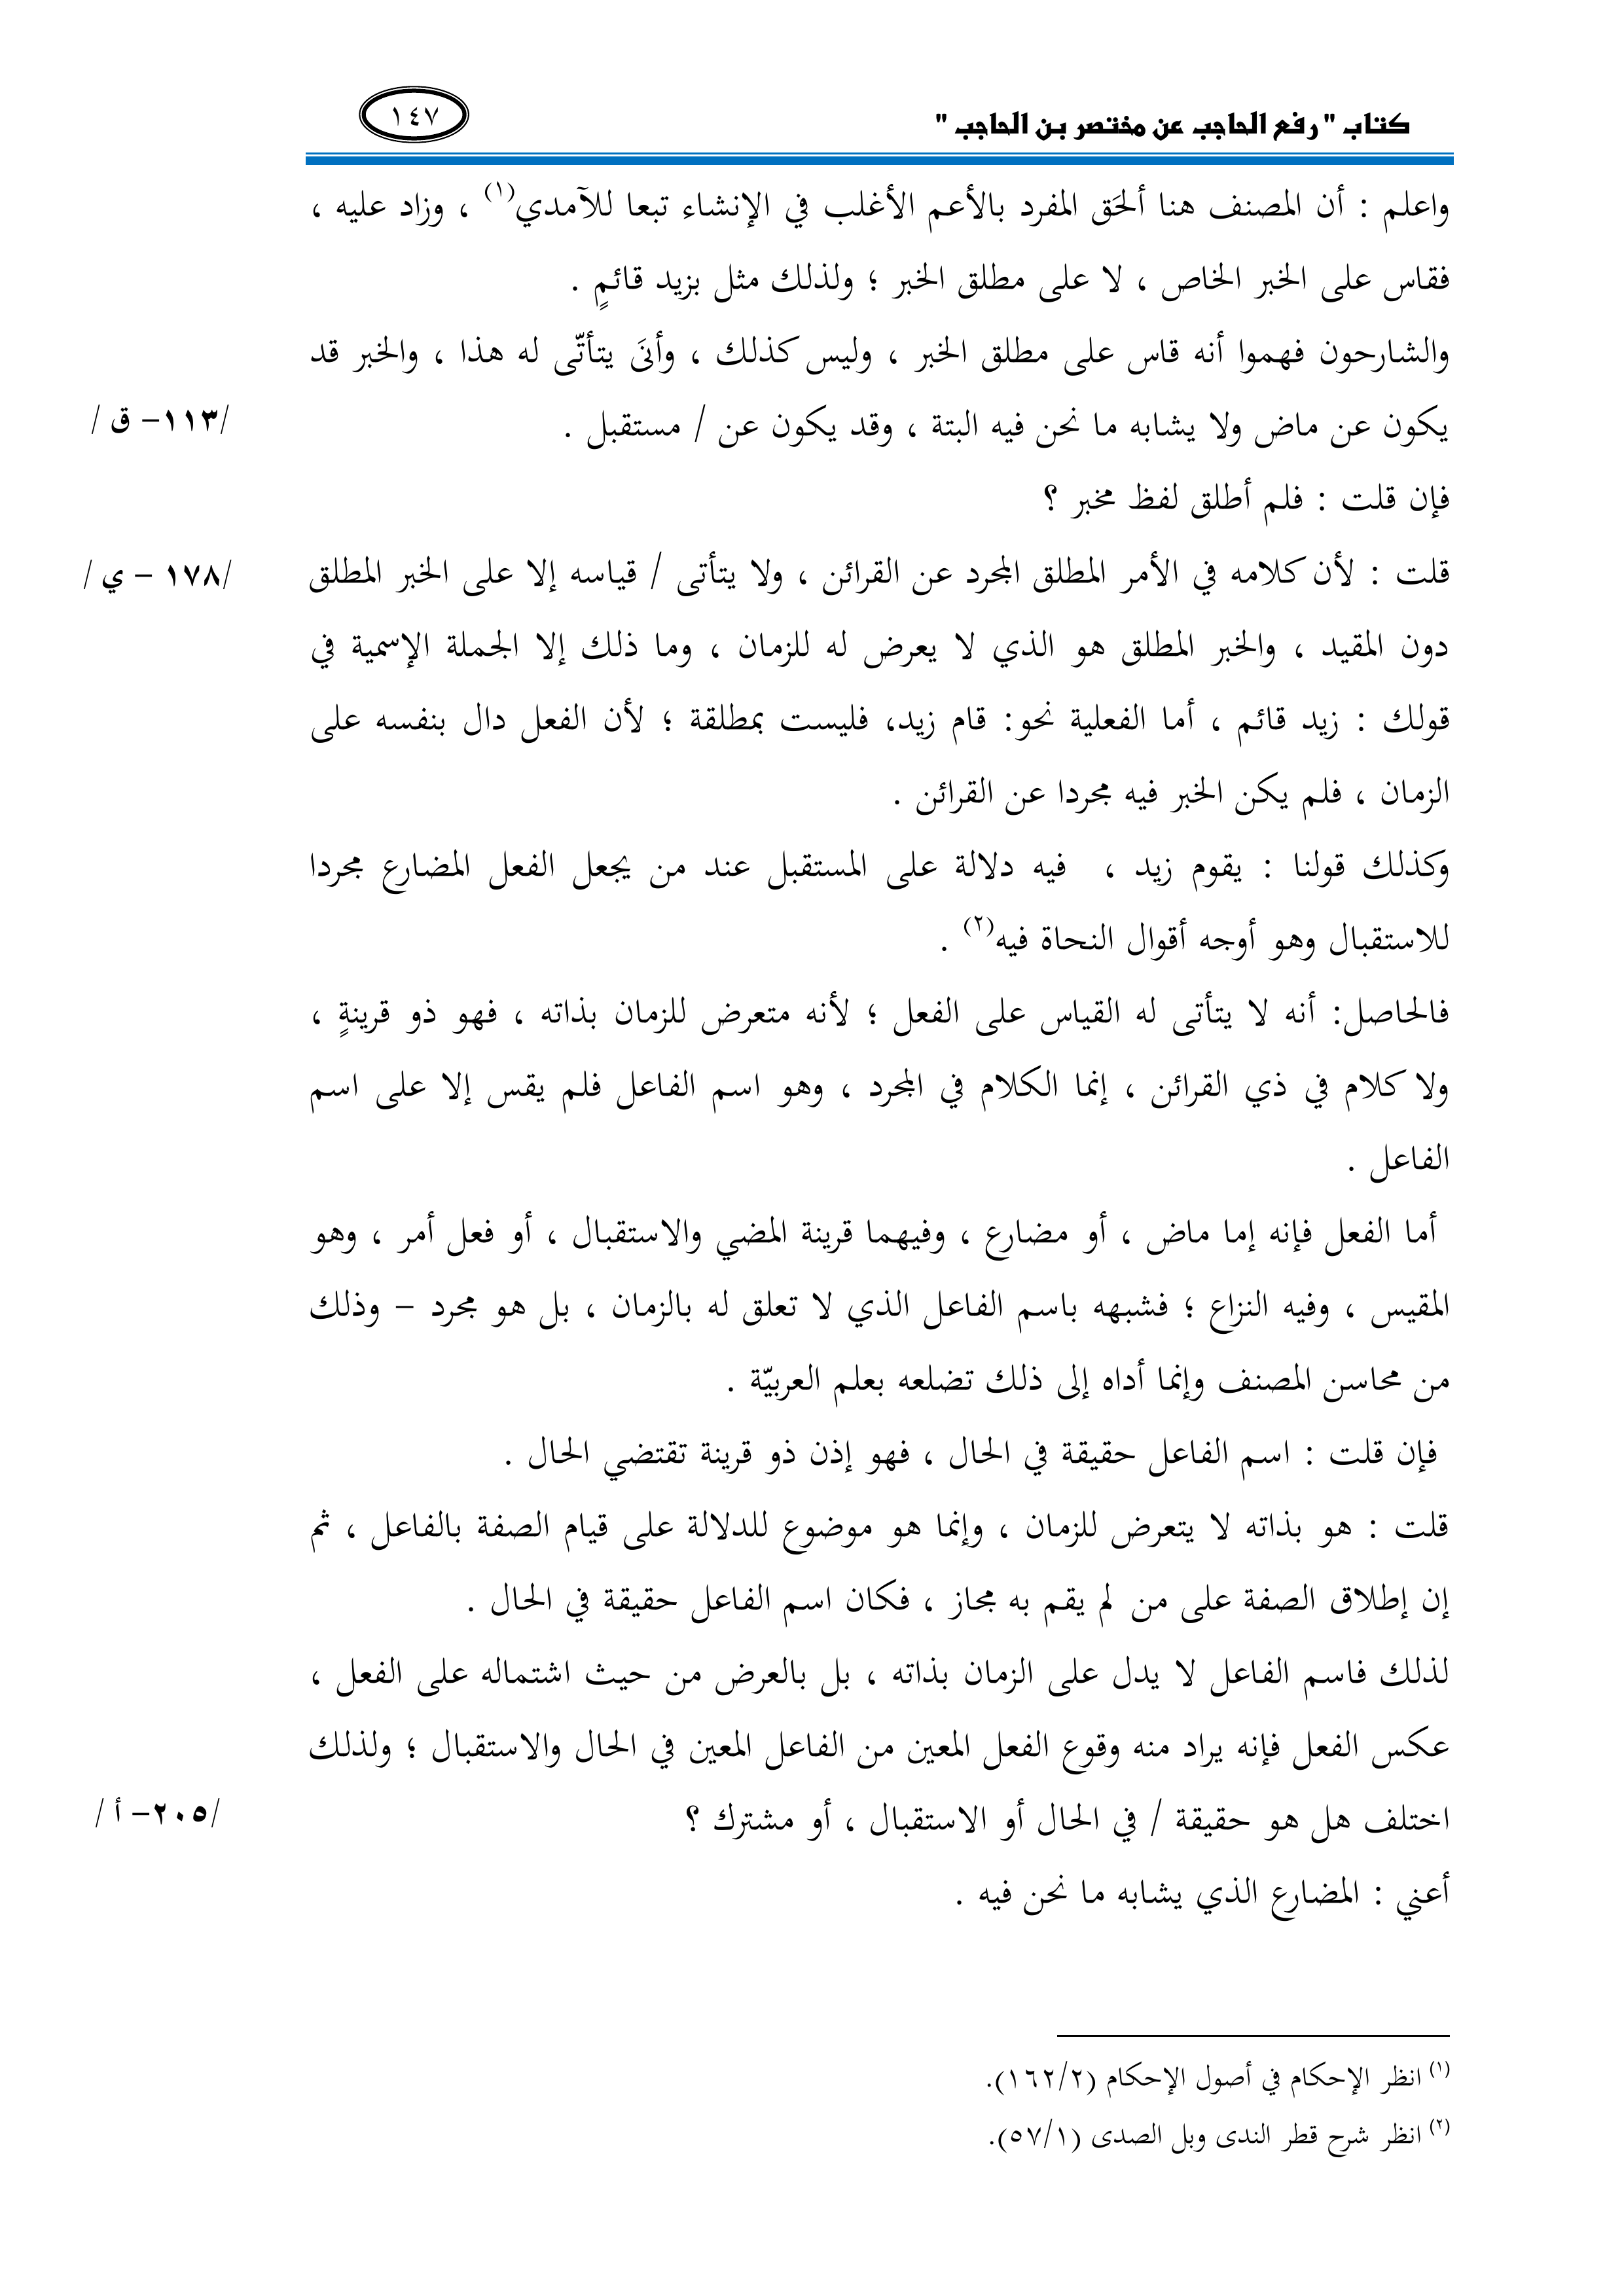 كتاب " رفع الحاجب عن مختصر بن الحاجب "
١٤٧
واعلم : أن المصنف هنا ألحَق المفرد بالأعم الأغلب في الإنشاء تبعا للآمدي(١) ، وزاد عليه ،
فقاس على الخبر الخاص ، لا على مطلق الخبر ؛ ولذلك مثل بزيد قائمٍ .
والشارحون فهموا أنه قاس على مطلق الخبر ، وليس كذلك ، وأنىَ يتأتّى له هذا ، والخبر قد
يكون عن ماض ولا يشابه ما نحن فيه البتة ، وقد يكون عن / مستقبل .
/١١٣– ق /
فإن قلت : فلم أطلق لفظ مخبر ؟
قلت : لأن كلامه في الأمر المطلق المجرد عن القرائن ، ولا يتأتى / قياسه إلا على الخبر المطلق
/١٧٨ – ي /
دون المقيد ، والخبر المطلق هو الذي لا يعرض له للزمان ، وما ذلك إلا الجملة الإسمية في
قولك : زيد قائم ، أما الفعلية نحو: قام زيد، فليست بمطلقة ؛ لأن الفعل دال بنفسه على
الزمان ، فلم يكن الخبر فيه مجردا عن القرائن .
وكذلك قولنا : يقوم زيد ، فيه دلالة على المستقبل عند من يجعل الفعل المضارع مجردا
للاستقبال وهو أوجه أقوال النحاة فيه(٢) .
فالحاصل: أنه لا يتأتى له القياس على الفعل ؛ لأنه متعرض للزمان بذاته ، فهو ذو قرينةٍ ،
ولا كلام في ذي القرائن ، إنما الكلام في المجرد ، وهو اسم الفاعل فلم يقس إلا على اسم
الفاعل .
أما الفعل فإنه إما ماض ، أو مضارع ، وفيهما قرينة المضي والاستقبال ، أو فعل أمر ، وهو
المقيس ، وفيه النزاع ؛ فشبهه باسم الفاعل الذي لا تعلق له بالزمان ، بل هو مجرد – وذلك
من محاسن المصنف وإنما أداه إلى ذلك تضلعه بعلم العربيّة .
فإن قلت : اسم الفاعل حقيقة في الحال ، فهو إذن ذو قرينة تقتضي الحال .
قلت : هو بذاته لا يتعرض للزمان ، وإنما هو موضوع للدلالة على قيام الصفة بالفاعل ، ثم
إن إطلاق الصفة على من لم يقم به مجاز ، فكان اسم الفاعل حقيقة في الحال .
لذلك فاسم الفاعل لا يدل على الزمان بذاته ، بل بالعرض من حيث اشتماله على الفعل ،
عكس الفعل فإنه يراد منه وقوع الفعل المعين من الفاعل المعين في الحال والاستقبال ؛ ولذلك
اختلف هل هو حقيقة / في الحال أو الاستقبال ، أو مشترك ؟
/٢٠٥– أ /
أعني : المضارع الذي يشابه ما نحن فيه .
(١) انظر الإحكام في أصول الإحكام (١٦٢/٢).
(٢) انظر شرح قطر الندى وبل الصدى (٥٧/١).